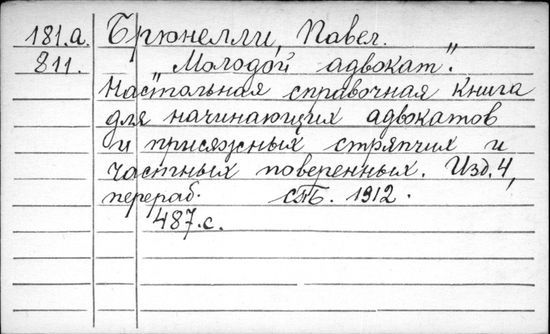 181.а. Брюнелли, Павел.
811. „Молодой адвокат".
Настольная справочная книга
для начинающих адвокатов
и присяжных стряпчих и
частных поверенных. Изд. 4,
перераб. СПБ. 1912.
487.с.